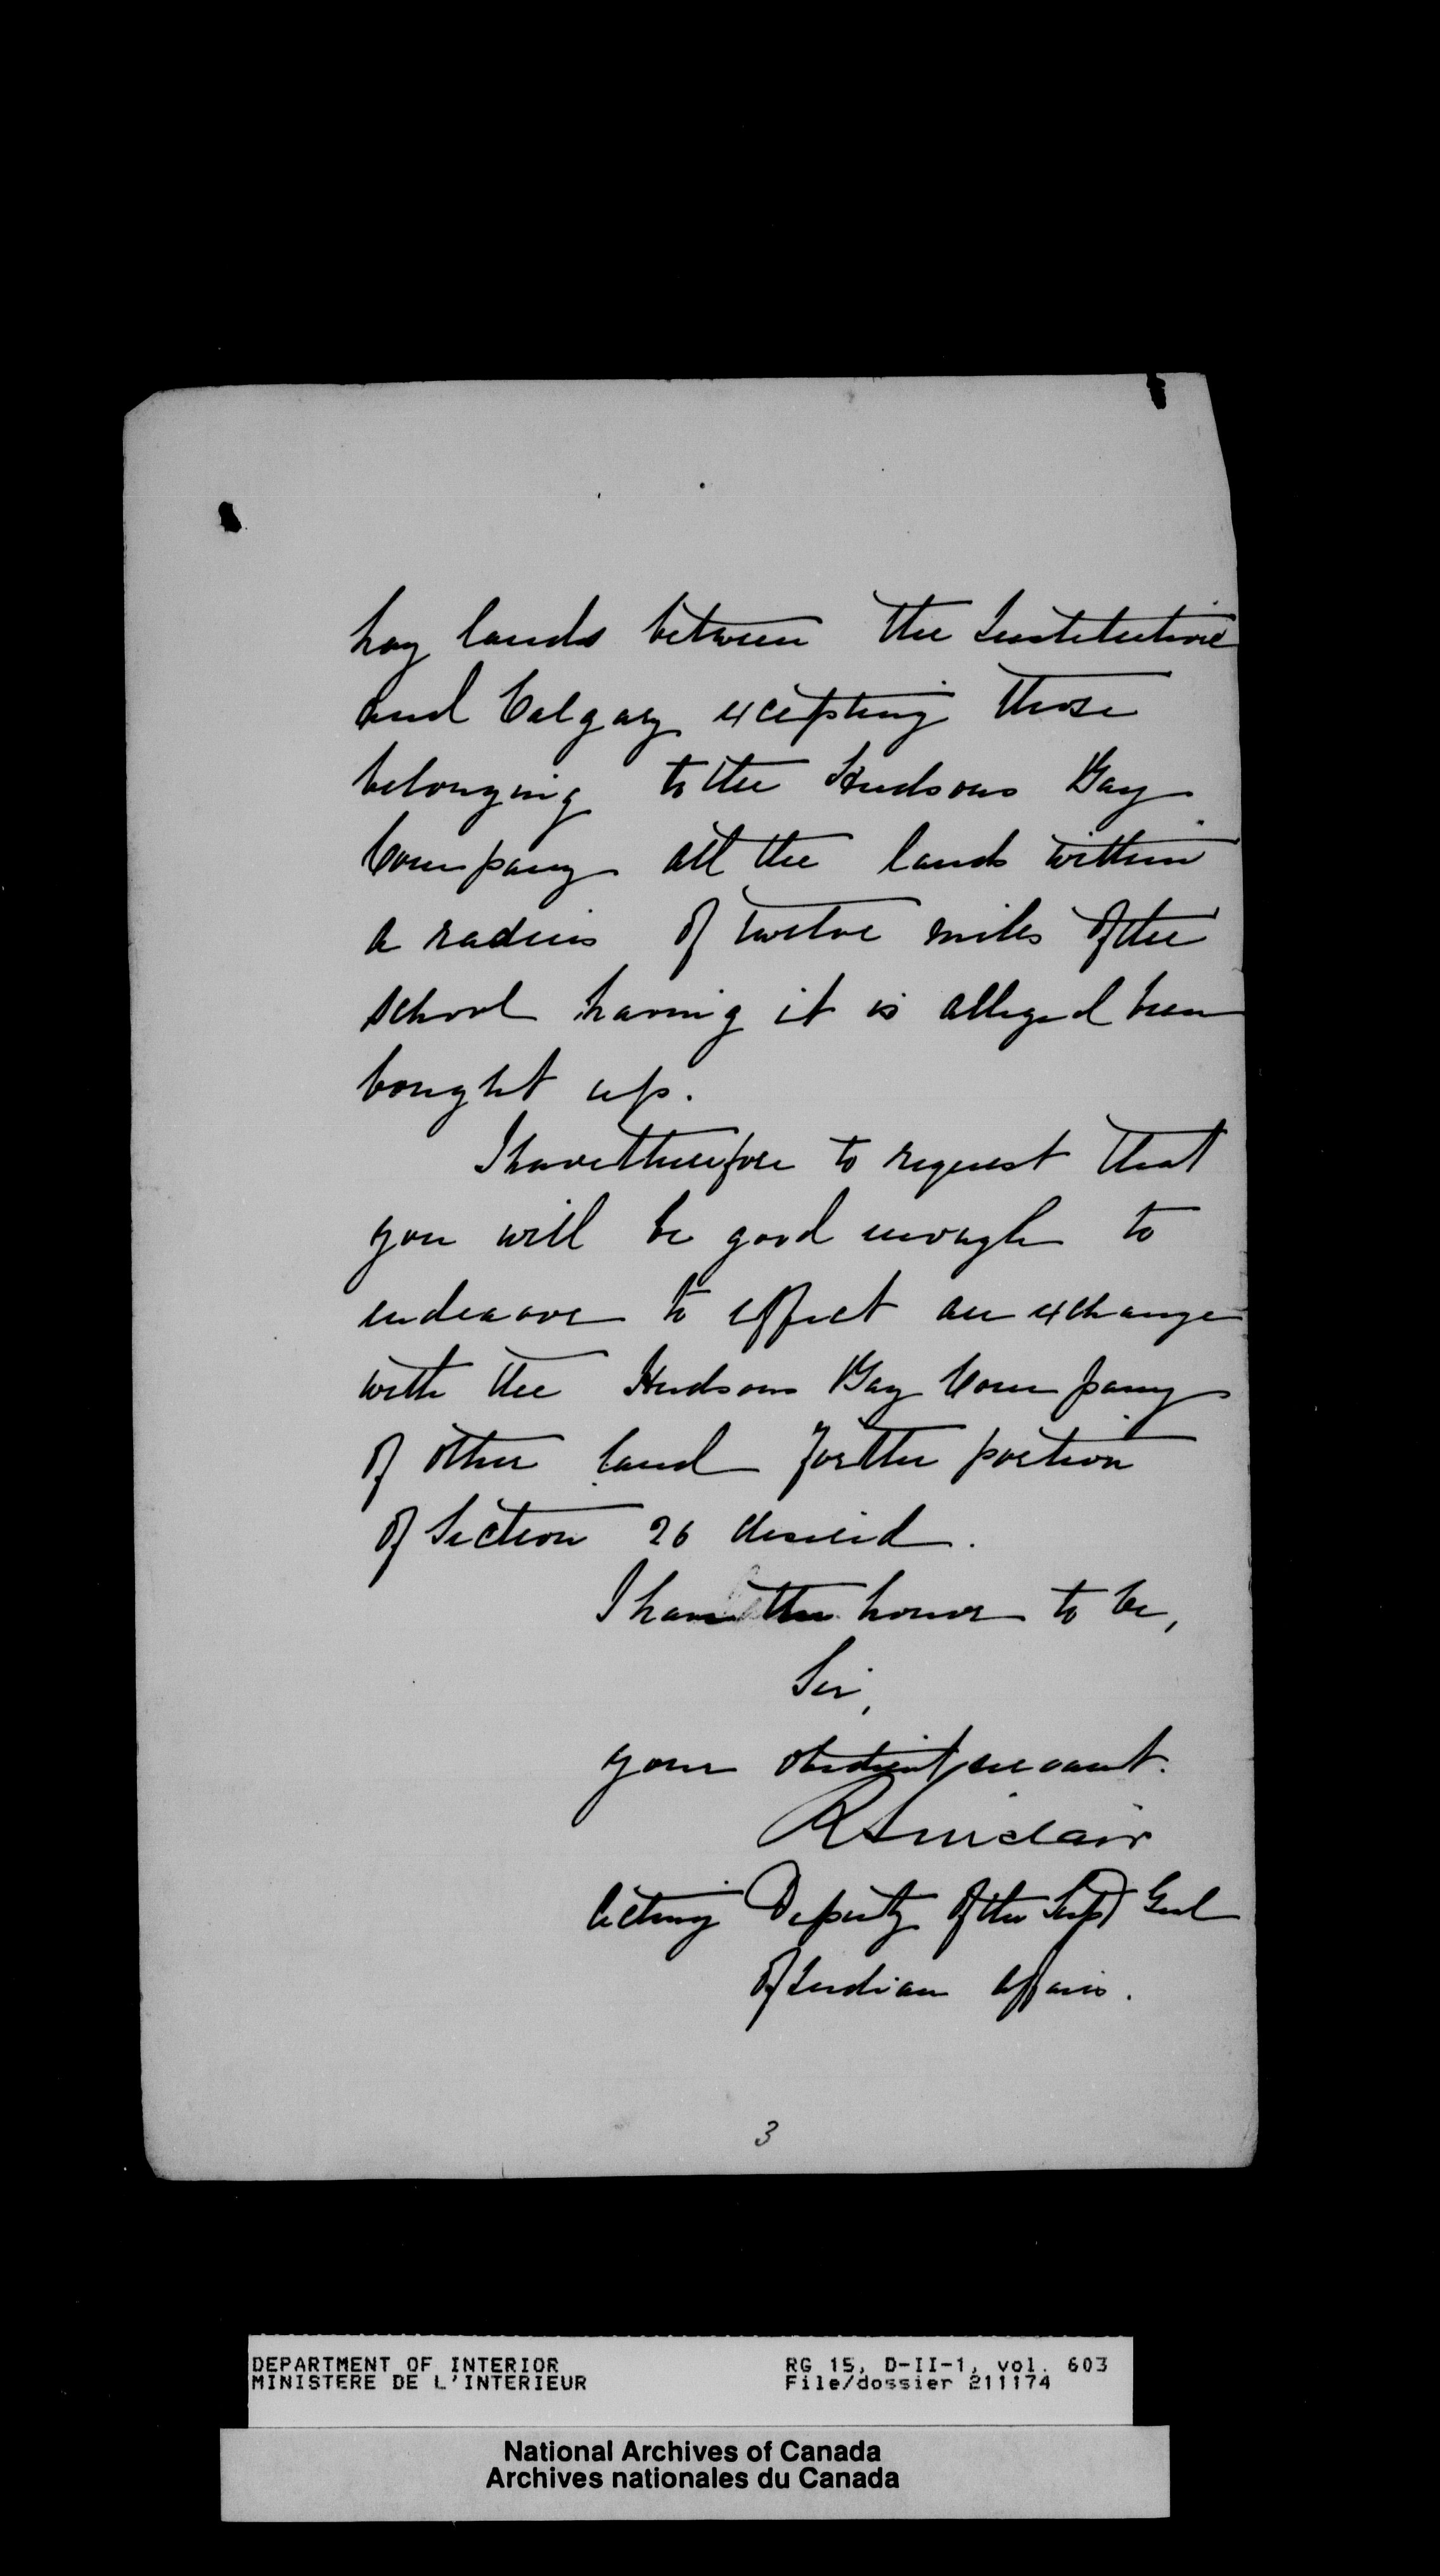 hay lands between the Institution
and Calgary excepting those
belonging to the Hudsons Bay
Company all the lands within
a radius of twelve miles of the
school having it is alleged been
bought up.
I have therefore to request that
you will be good enough to
endeavor to effect an exchange
with the Hudsons Bay Company
of other land for the portion
of Section 26 desired.
I have the honor to be,
Sir,
your obedient servant.
R Sinclair
Acting Deputy of the Supt Genl
of Indian Affairs.
3
DEPARTMENT OF INTERIOR RG 15, D-II-1, vol. 603
MINISTERE DE L'INTERIEUR File/dossier 211174
National Archives of Canada
Archives nationales du Canada